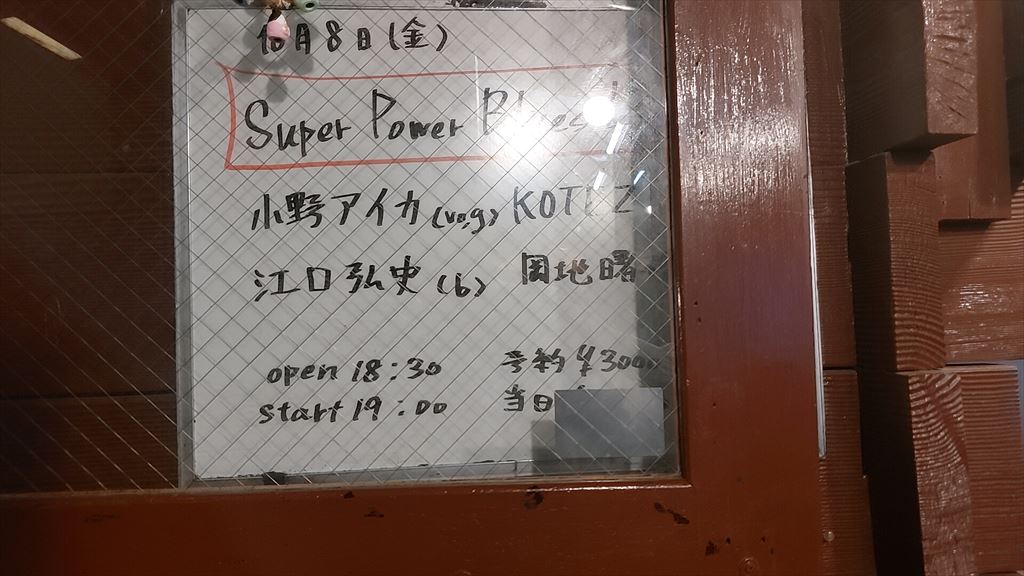 10月8日(金)
Super Power
小野アイカ(vo,g) KOTEZ
江口弘史(b) 岡地曙
open 18:30 予約 ¥300
start 19:00 当日